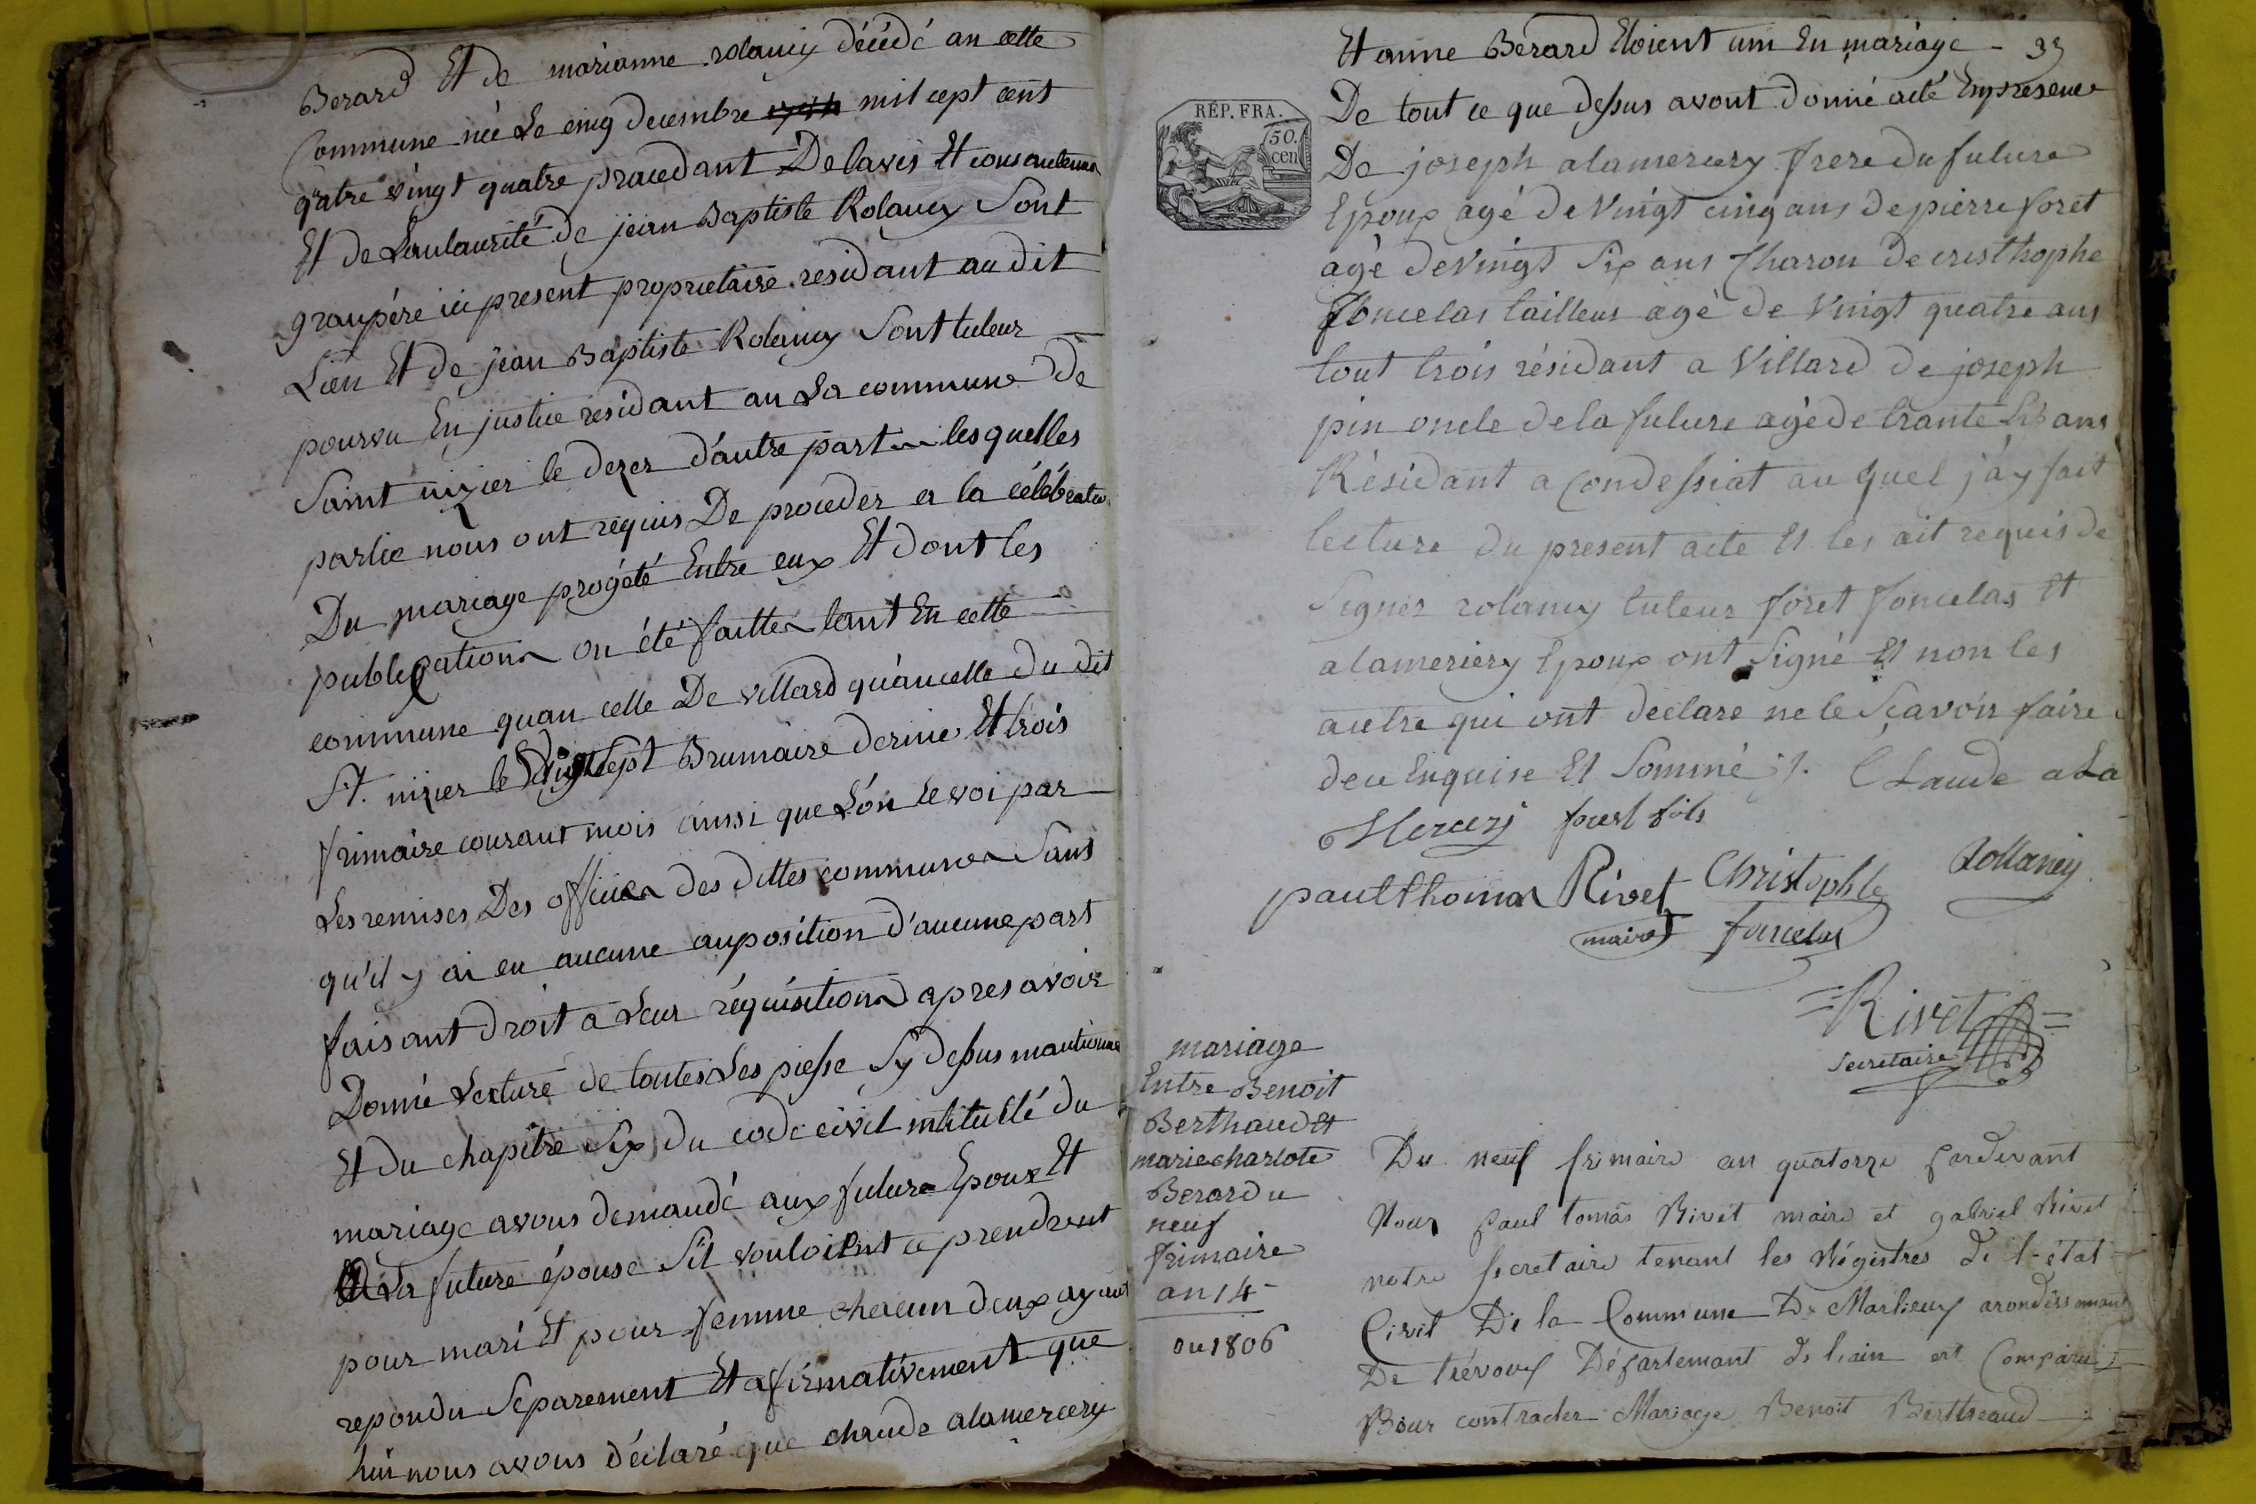 Berard Et de marianne rolancy décédé an cette
Commune née Le cinq decembre mil cept cent
qatre vingt quatre procedant De lavis Et consantem
Et de Lautaurité de jean Baptiste Rolancy Sont
granpére ici present proprietaire residant au dit
Lieu Et de jean Baptiste Rolancy Sont tuteur
pourvu En justice residant an La commune de
Saint nizier le dezer d'autre part lesquelles
partie nous ont requis De proceder a la célébratio
Du mariage progété Entre eux Et dont les
publication on été faitte tant En cette
commune quan celle De villard qu'aucelle du dit
St. nizier le Brumaire dernie Et trois
frimaire courant mois ainsi que L'on le voi par
Les remises Des officie des dittes commune Sans
qu'il y ai eu aucune auposition d'aucune part
faisant droit a Leur réquisition apres avoir
Donné Lecture de toutes Les piesse Sy dessus mantionne
Et du chapitre Six du code civil intitullé du
mariage avons demandé aux future Epoux Et
a La future épouse S'il vouloient ce prendrent
pour mari Et pour femme chacun deux ayant
repondu Separement Et afirmativement que
hui nous avons déclaré que claude alamercery
Et anne Berard Etoient uni En mariage - 33
RÉP. FRA.
50.
cen
De tout ce que dessus avont donné acte En presence
De joseph alamercery frere du future
Epoux agé de vingt cinq ans de pierre foret
agé de vingt Six ans Charon de cristhophe
foncelas tailleur agé de vingt quatre ans
tout trois résidant a Villard de joseph
pin oncle de la future agé de trante Six ans
Résidant a Condessiat au quel j'ay fait
lecture du present acte Et les ait requis de
Signer rolancy tuteur foret foncelas Et
alameriery Epoux ont Signé Et non les
autre qui ont declare ne le Sçavoir faire
deu Enquise Et Sommé ./. Claude a La
Mercery fourt fils
paul thomas Rivet Christophle Rollancy
maire foncelas
= Rivet =
secretaire
mariage
Entre Benoit
Berthaud Et
marie charlote
Berard u
neuf
frimaire
an 14
ou 1806
Du neuf frimaire an quatorze pardevant
Nous paul tomas Rivet maire et gabriel Rivet
notre secretaire tenant les Régistres de l-état
Civil De la Commune De Marlieux arondissemant
De trévoux Départemant de l'ain est Comparu
Pour contracter Mariage Benoit Bertheaud